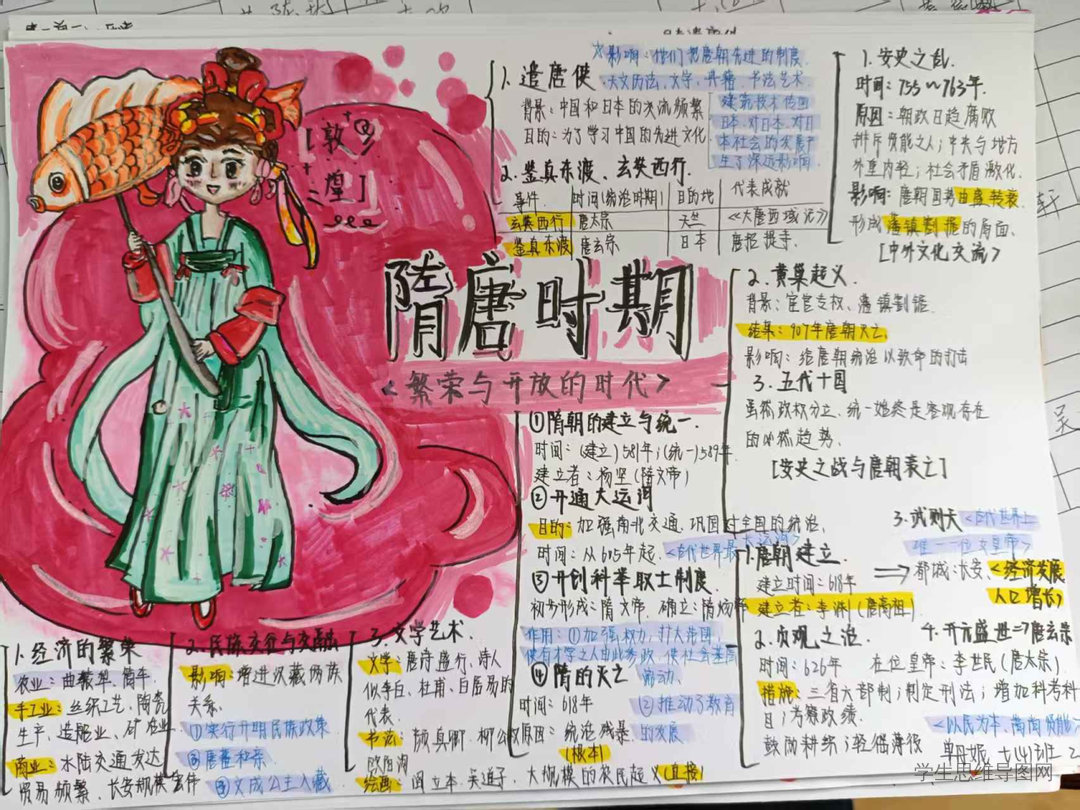 [敦
煌]
隋唐时期
<繁荣与开放的时代>
1.遣唐使
背景：中国和日本的交流频繁
目的：为了学习中国的先进文化
☆影响：他们把唐朝先进的制度
天文历法、文字、典籍、书法艺术
建筑技术传回
日本，对日本
社会的发展产
生了深远影响
2.鉴真东渡、玄奘西行.
事件 时间(统治时期) 目的地 代表成就
玄奘西行 唐太宗 天竺 《大唐西域记》
鉴真东渡 唐玄宗 日本 唐招提寺.
1.安史之乱.
时间：755~763年.
原因：朝政日趋腐败
排斥贤能之人；中央与地方
外重内轻；社会矛盾激化.
影响：唐朝国势由盛转衰
形成藩镇割据的局面.
[中外文化交流>
2.黄巢起义.
背景：宦官专权、藩镇割据.
结果：907年唐朝灭亡
影响：给唐朝统治以致命的打击
3.五代十国
虽然政权分立、统一始终是客观存在
的必然趋势、
[安史之战与唐朝衰亡]
①隋朝的建立与统一.
时间：(建立)581年；(统一)589年.
建立者：杨坚(隋文帝)
②开通大运河
目的：加强南北交通，巩固对全国的统治.
时间：从605年起.<古代世界最长运河>
③开创科举取士制度.
初步形成：隋文帝，确立：隋炀帝
作用：①加强权力，扩大
使有才学之人由此参政，使社会
流动.
②推动了教育
的发展
④隋的灭亡
时间：618年
原因：统治残暴
(根本)
大规模的农民起义(直接)
1.唐朝建立.
建立时间：618年
建立者：李渊(唐高祖).
都城：长安、<经济发展
人口增长>
2.贞观之治.
时间：626年 在位皇帝：李世民(唐太宗).
措施：三省六部制；制定刑法；增加科考科
目；考察政绩.
鼓励耕织；轻徭薄役
<以民为本，
3.武则天<古代世界上
唯一一位女皇帝>
4.开元盛世→唐玄宗
1.经济的繁荣
农业：曲辕犁、筒车.
手工业：丝织工艺、陶瓷
生产、造船业、矿冶业.
商业：水陆交通发达
贸易频繁、长安规模宏伟
2.民族交往与交融
影响：增进汉藏两族
关系.
①实行开明民族政策
③唐蕃和亲.
④文成公主入藏
3.文学艺术.
文学：唐诗盛行、诗人
似李白、杜甫、白居易的
代表.
书法：颜真卿、柳公权
欧阳询
绘画：阎立本、吴道子.
学生思维导图网